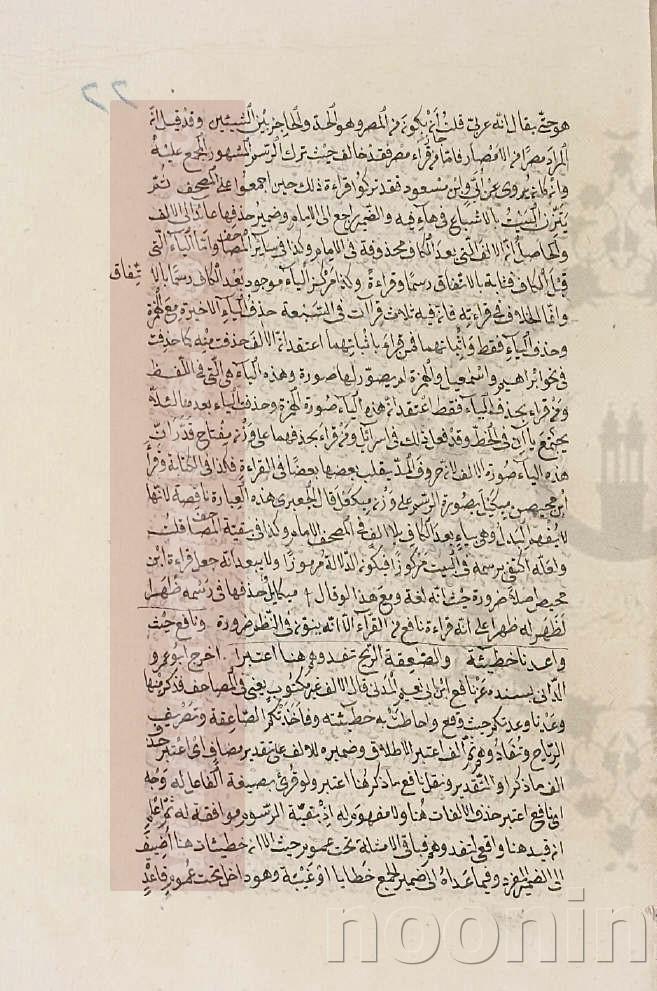 هو حتى يقال انه عربي قلت انه يكون من المصر وهو الحد والحاجز بين الشيئين وقد قيل انه
المراد مصرا من الامصار فاما من قراء مصر فقد خالف حيث ترك الرسم المشهور المجمع عليه
وانما يروى عن ابي وابن مسعود فقد تركوا قراءة ذلك حين اجمعوا على المصحف ثم
يتزن البيت بالاشباع في هاء فيه والضمير راجع الى الامام وضمير حذفها عائد الى الالف
والحاصل ان الالف التي بعد الكاف محذوفة في الامام وكذا في سائر المصاحف واما الياء التي
قبل الكاف فثابتة بالاتفاق رسما وقراءة وكذا مركز الياء موجود بعد الكاف رسما بالا
تفاق
وانما الخلاف في قراءته فان فيه ثلاث قراآت في السبعة حذف الياء الاخيرة مع الهمزة
وحذف الياء فقط واثباتهما فمن قراء باثباتهما اعتقد ان الالف حذفت منه كما حذفت
في نحو ابراهيم واسمعيل والهمزة لم يصور لها صورة وهذه الياء هي التي في اللفظ
ومن قراء بحذف الياء فقط اعتقد ان هذه الياء صورة الهمزة وحذفت الياء بعدها لئلا
يجتمع ياآن في الخط وقد فعل ذلك في اسرائيل ومن قراء بحذفهما على وزن مفتاح قدر ان
هذه الياء صورة الالف لان حروف المد يقلب بعضها بعضا في القراءة فكذا في الكتابة وقرأ
ابن محيصن ميكئل بصورة الرسم على وزن ميكعل قال الجعبري هذه العبارة ناقصة لانها
لا يفهم البدل وهي بياء بعد الكاف بلا الف في المصحف الامام وكذا في بقية المصاحف قلت
ولعله اكتفى برسمه في البيت مركوزا فيكون الدلالة مرموزا ولا يبعد انه جعل قراءة ابن
محيصن اصلا ضرورة حيث انه لغة ومع هذا لو قال ميكايل حذفها في رسمه ظهرا
لظهر له ظهرا على انه قراءة نافع من القراء الا انه ينون في النظم ضرورة ونافع حيث
واعدنا خطيئة والصعقة الريح تفدوهم هنا اعتبرا اخرج ابو عمرو
الداني بسنده عن نافع ابن ابي نعيم المدني قال الالف غير مكتوب يعني في المصاحف فذكر منها
وعدنا وعدتكم حيث وقع واحاطت به خطيئته وفاخذتكم الصاعقة وتصريف
الرياح وتفادوهم ثم الف اعتبر للاطلاق وضميره للالف على تقدير مضاف اي اعتبر حذف
الف ما ذكر او التقدير ونقل نافع ما ذكر هنا اعتبر ولو قرئ بصيغة الفاعل له وجه
اي نافع اعتبر حذف الالفات هنا ولا مفهوم له اذ بقية الرسوم موافقة له ثم اعلم
ان قيد هنا واقع لتفدوهم فباقي الامثلة تحت عموم حيث الا ان خطيئات هنا اضيف
الى الضمير المفرد وفيما عداه الى ضمير الجمع خطابا او غيبة وهو داخل تحت عموم قاعدة
noonin